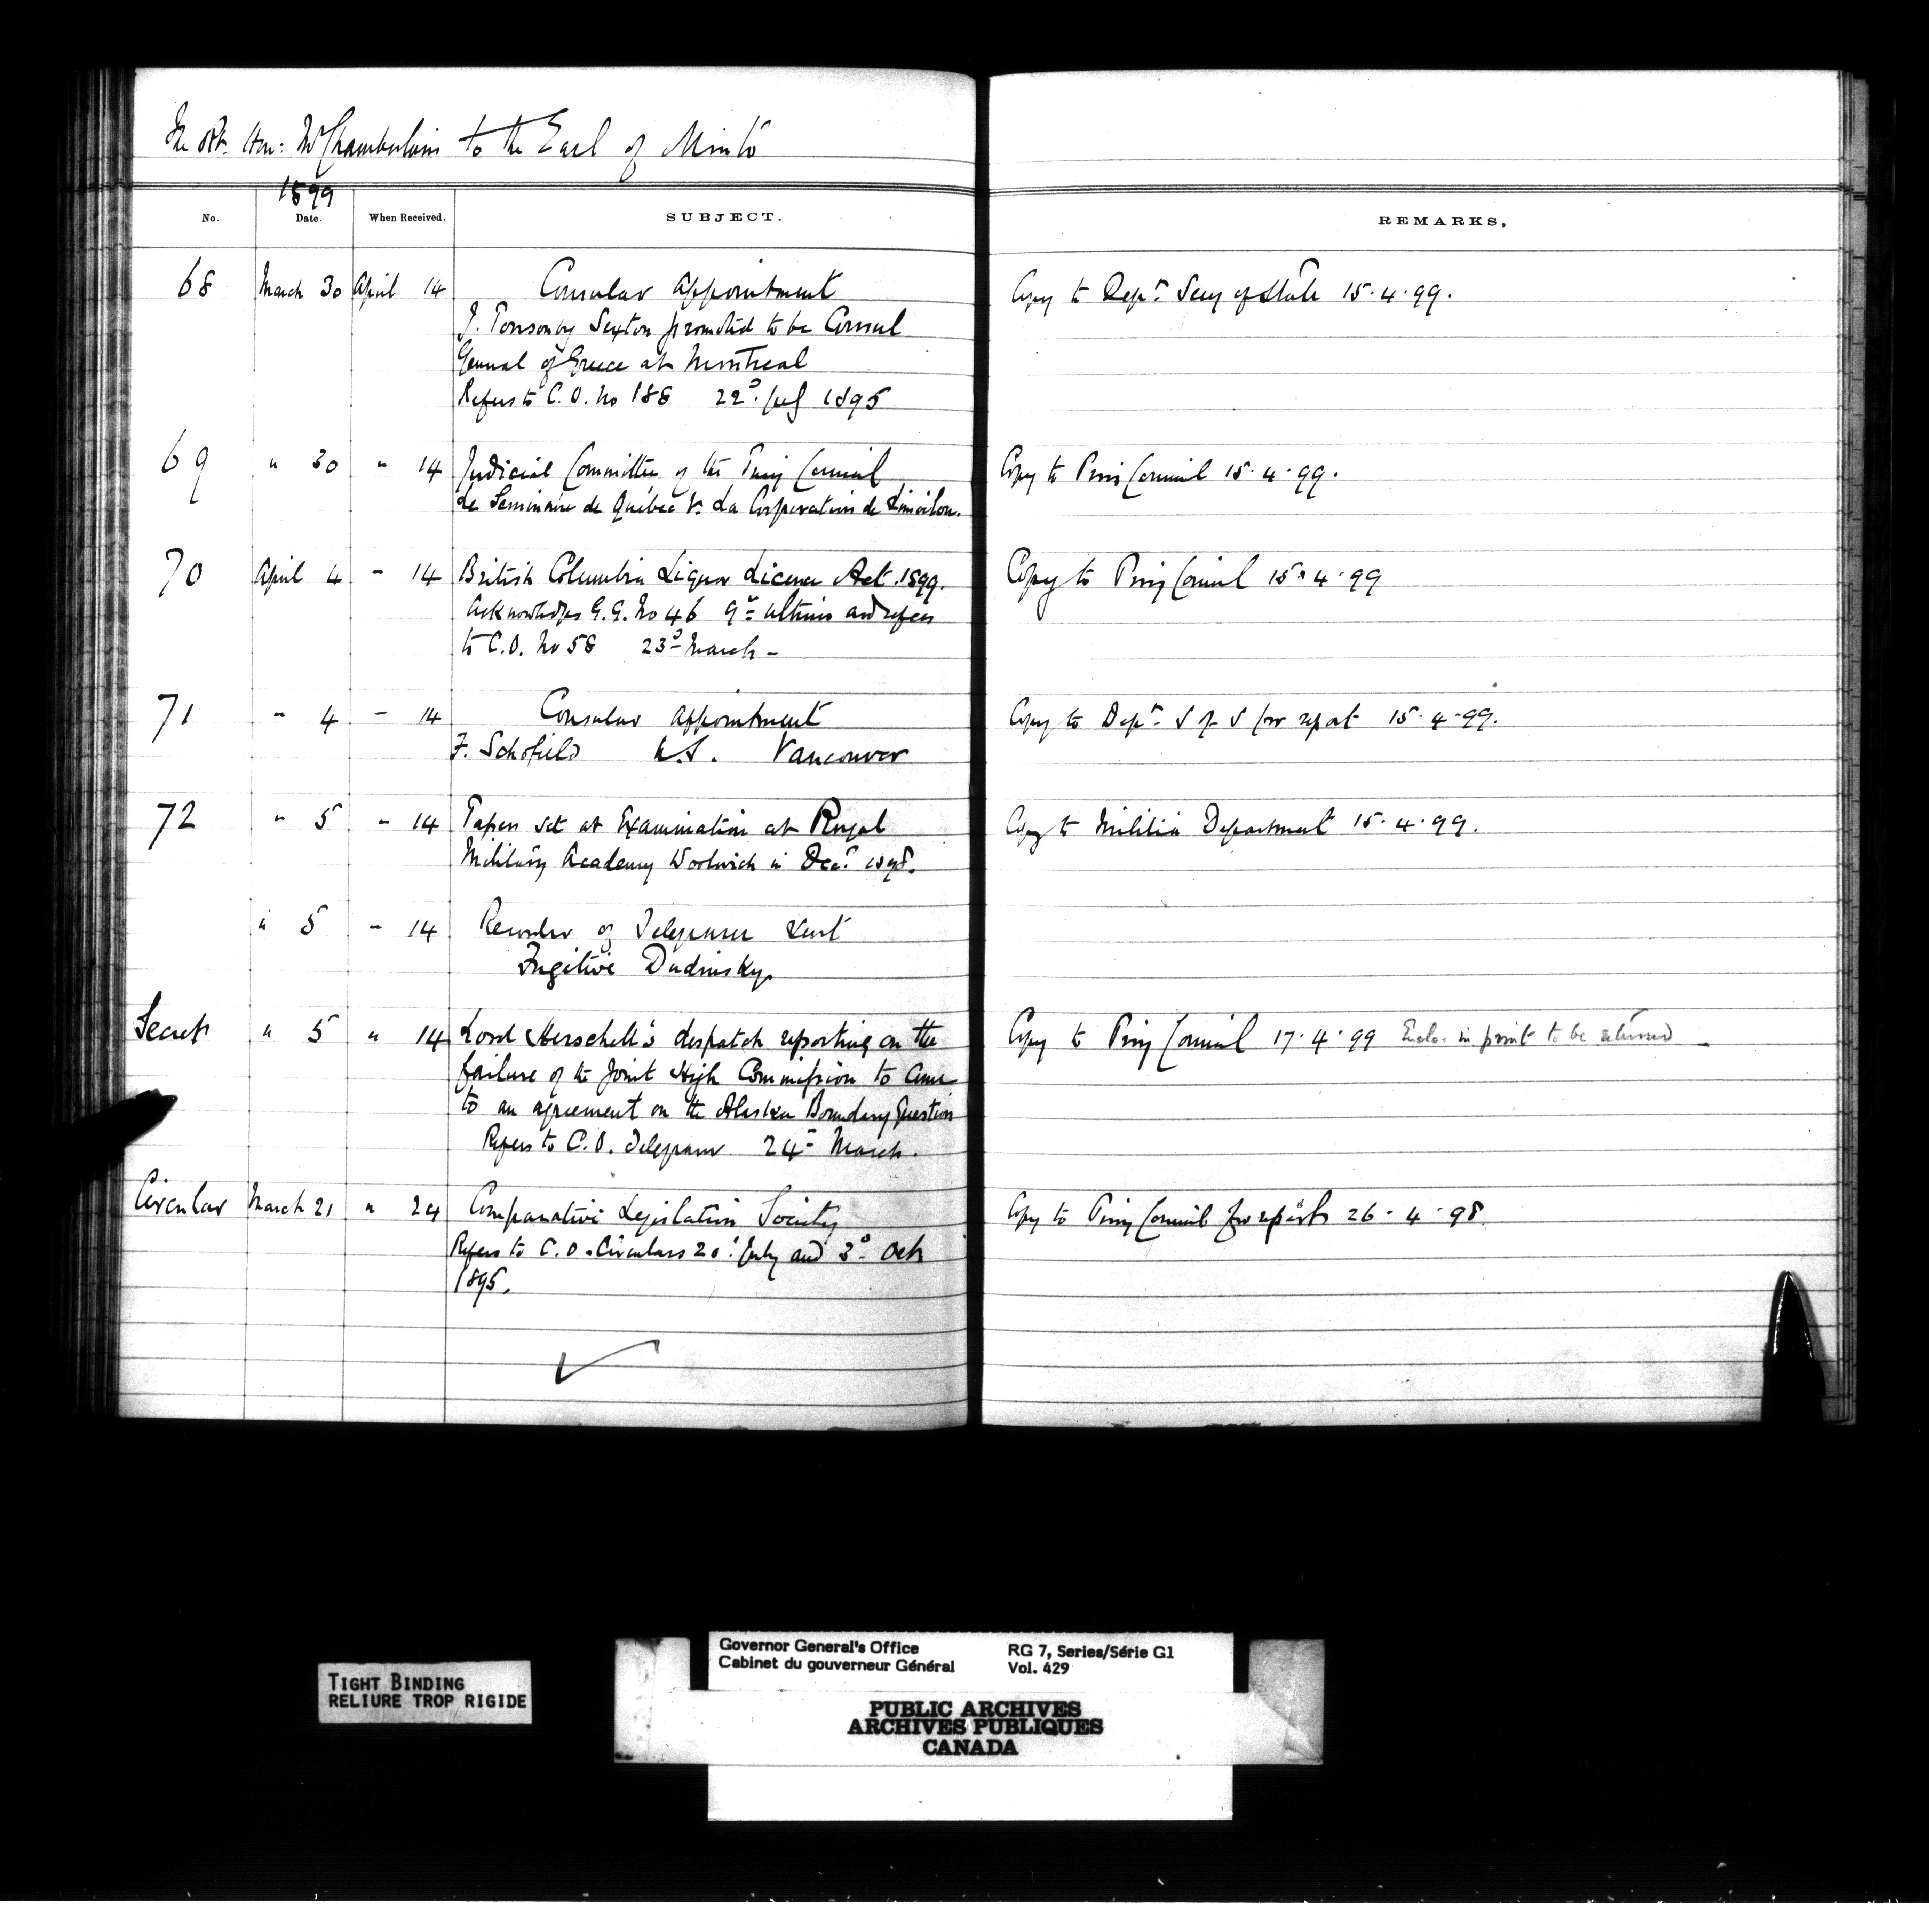 The Rt. Hon: Mr Chamberlain to the Earl of Minto
1899
No. Date. When Received. SUBJECT. REMARKS.
68 March 30 April 14 Consular Appointment Copy to Dept. Secy of State 15.4.99.
J. Ponsonby Sexton promoted to be Consul
General of Greece at Montreal
Refers to C.O. No 188 22d July 1895
69 " 30 " 14 Judicial Committee of the Privy Council Copy to Privy Council 15.4.99.
Le Seminaire de Québec v. La Corporation de Limoilou.
70 April 4 - 14 British Columbia Liquor License Act. 1899. Copy to Privy Council 15.4.99
Acknowledges G.G. No 46 9th ultimo and refers
to C.O. No 58 23d March -
71 " 4 - 14 Consular Appointment Copy to Dept. S of S for report 15.4.99.
F. Schofield U.S. Vancouver
72 " 5 - 14 Papers set at Examination at Royal Copy to Militia Department 15.4.99.
Military Academy Woolwich in Decr. 1898.
" 5 - 14 Recorder of Telegram sent
Fugitive Dudinsky.
Secret " 5 " 14 Lord Herschell's despatch reporting on the Copy to Privy Council 17.4.99 Enclo. in print to be returned -
failure of the Joint High Commission to come
to an agreement on the Alaska Boundary Question
Refers to C.O. Telegram 24th March.
Circular March 21 " 24 Comparative Legislation Society Copy to Privy Council for report 26.4.98
Refers to C.O. Circulars 20th July and 3d Oct
1895.
TIGHT BINDING
RELIURE TROP RIGIDE
Governor General's Office RG 7, Series/Série G1
Cabinet du gouverneur Général Vol. 429
PUBLIC ARCHIVES
ARCHIVES PUBLIQUES
CANADA